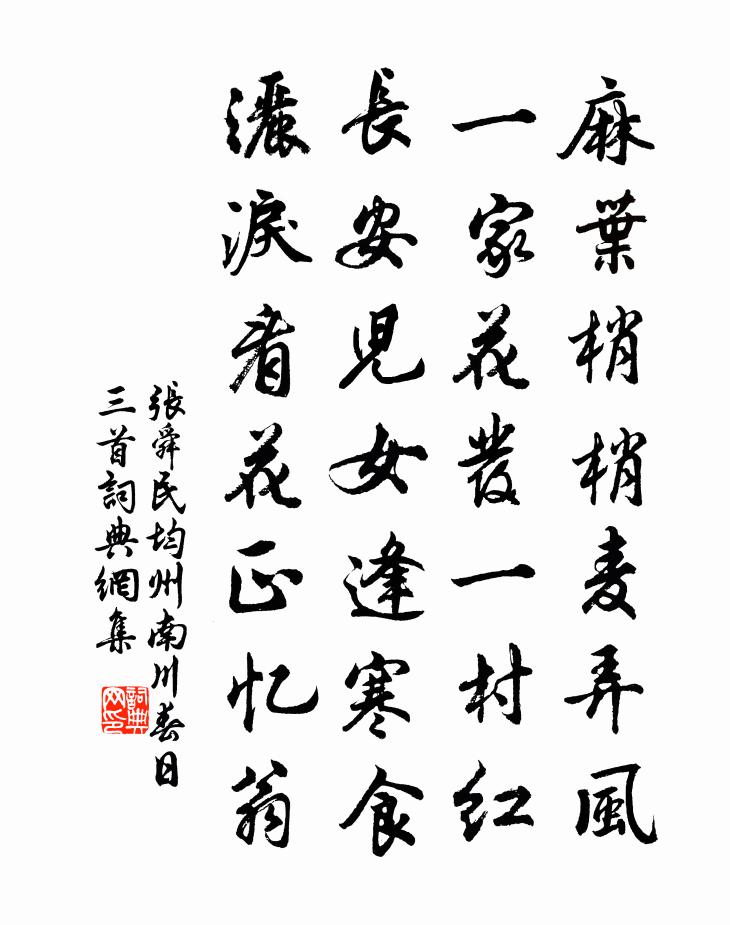 麻葉梢梢麦弄風
一家花發一村紅
長安兒女逢寒食
灑淚看花正忆翁
張舜民均州南川春日
三首詞典網集
詞典网印